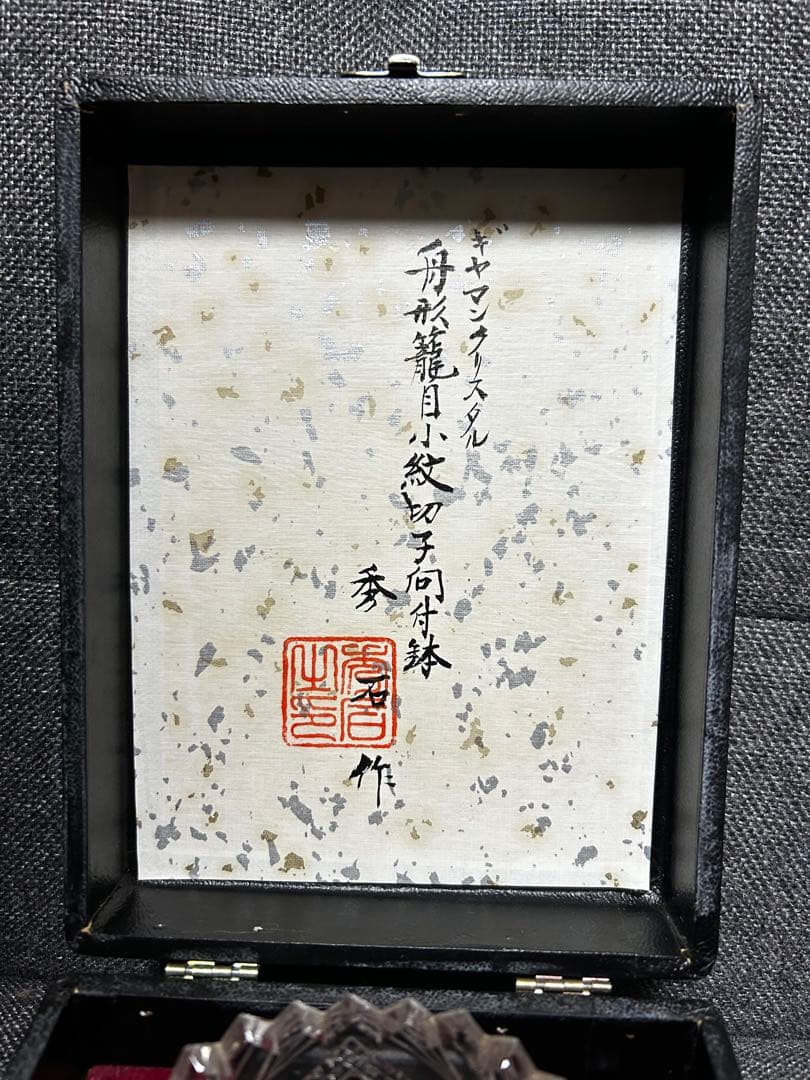 ギヤマンクリスタル
舟形籠目小紋切子向付鉢
秀石作